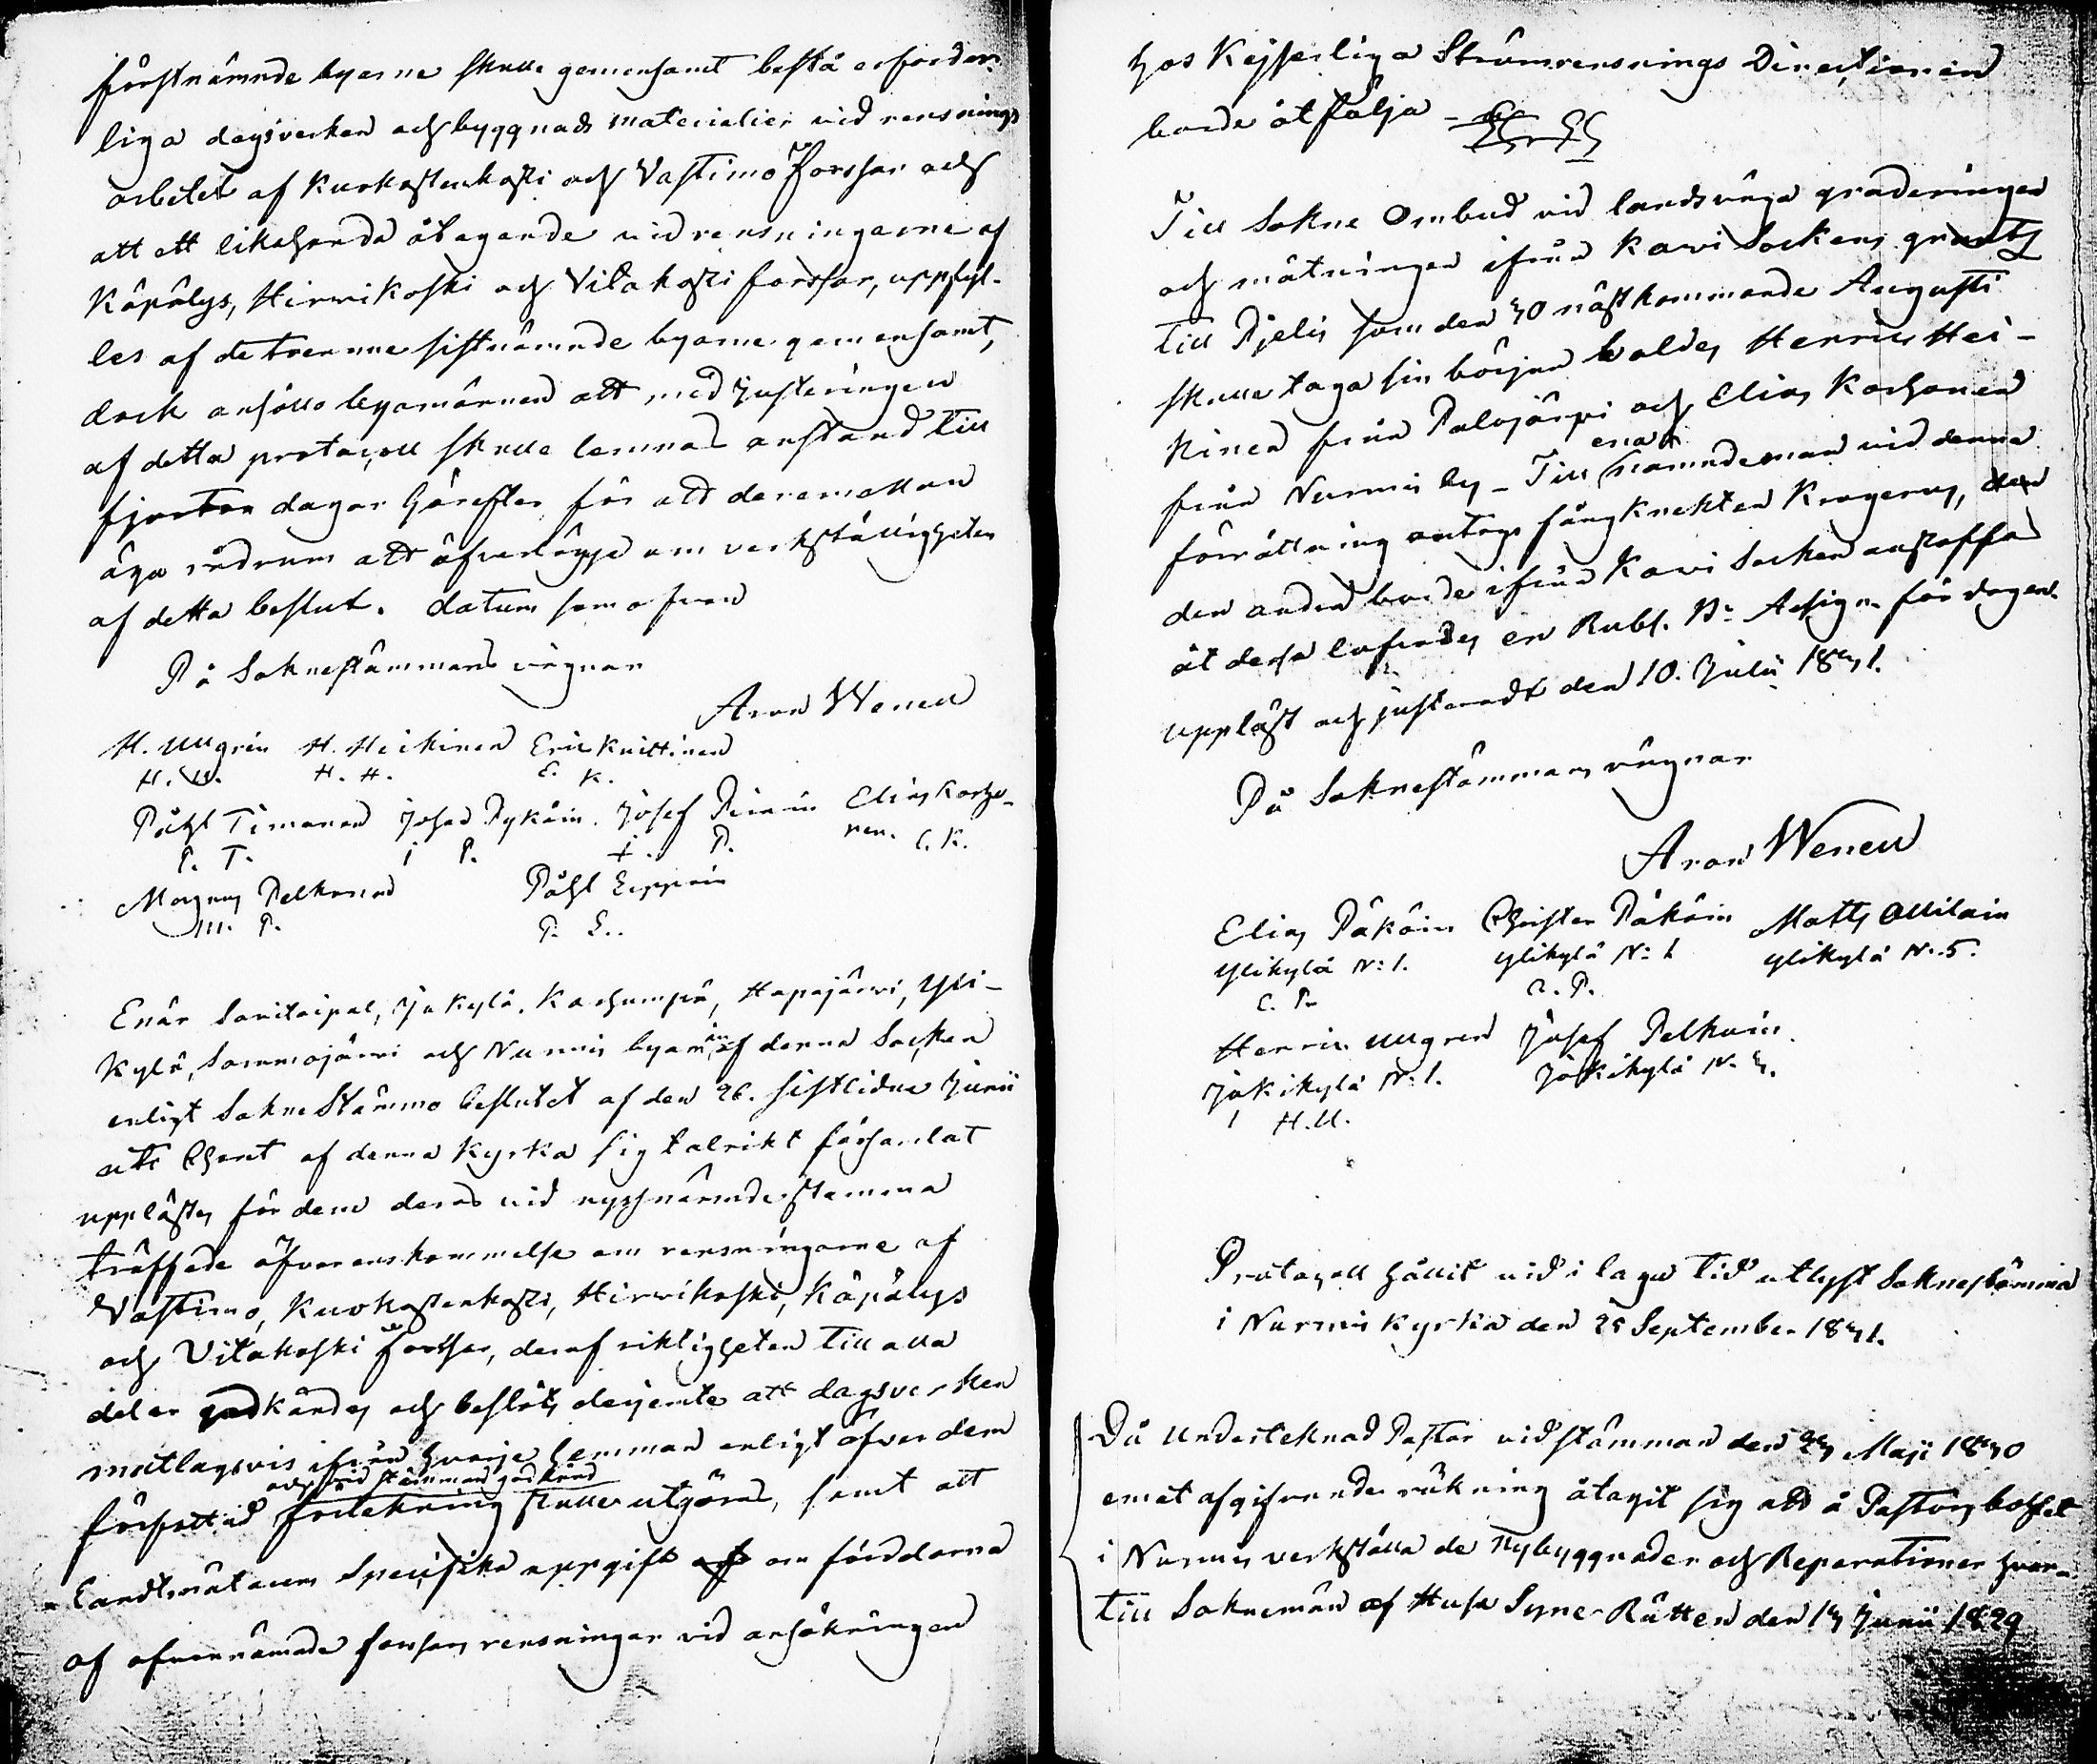 förstnämnde byarne skulle gemensamt bestå erforder-
liga dagsverken och byggnads materialier vid rensnings
arbetet af Kuokastenkoski och Vastimo Forssar och
att ett likahanda åtagande vid rensningarne af
Käpälys, Hirvikoski och Vitakoski forssar, uppfyl-
les af de trenne sistnämnde byarne gemensamt,
dock anhöllo byamännen att med Justeringen
af detta protocoll skulle lemnas anstånd till
fjorton dagar härefter för att deremellan
äga rådrum att öfverlägga om verkställigheten
af detta beslut. datum som ofvan
På Soknestämmans vägnar
Aron Wenell
H. Ullgrén H. Heikinen Eric Knittinen
H. U. H. H. E. K.
Påhl Timonen Johan Pykäin Josef Piiroin Elias Korho-
P. T. i P. i P. nen. E. K.
Magnus Pelkonen Påhl Eeppoin
M. P. P. E.
Enär Savitaipal, Jokikylä, Karhunpä, Hapajärvi, Yli-
kylä, Sammajärvi och Nurmis byamän af denna Socken
enligt SokneStämmo beslutet af den 26. sistlidne Junii
uti Choret af denna Kyrka sig talrikt församlat
upplästes för dem deras vid nyssnämnde stämma
träffade öfverenskommelse om rensningarne af
Vastimo, Kuokastenkoski, Hirvikoski, Käpälys
och Vitakoski forssar, deraf riktigheten till alla
delar godkändes och beslöts derjemte att dagsverken
matlagsvis ifrån hvarje hemman enligt öfver dem
och vid stämman godkänd
författad förtekning skulle utgöras, samt att
Landtmätarens specifika uppgift af om fördelarna
af ofvannämnde forssars rensningar vid ansökningen
hos Kejserliga Strömrensnings Directionen
borde åtfölja
Till Sokne Ombud vid landsväga graderingen
och mätningen ifrån Kavi Sockens grants
till Pjelis som den 30 nästkommande Augusti
skulle taga sin början valdes Henric Hei-
kinen från Palojärvi och Elias Korhonen
från Nurmis by - Till ena nämndeman vid denna
förrättning antogs fångknekten Krogerus, den
den andra borde ifrån Kavi Socken anskaffas
åt dessa lofvades en Rubl. B:o Assign. för dagen.
uppläst och justeradt den 10. Julii 1831.
På Soknestämmans vägnar
Aron Wenell
Elias Päkäin Christer Päkäin Matts Ollilain
Ylikylä N:1. Ylikylä N:1 Ylikylä N:5.
E. P. C. P.
Henric Ullgren Josef Pelkoin
Jokikylä N:1. Jokikylä N. 3.
H. U.
Protocoll hållit vid i laga tid utlyst Soknestämma
i Nurmis Kyrka den 25 September 1831.
Då Underteknad Pastor vid stämman den 23 Maji 1830
emot afgifvande räkning åtagit sig att å Pastorsbohlet
i Nurmis verkställa de Nybyggnader och Reparationer hvar-
till Soknemän af Huse Syne-Rätten den 13 Junii 1829